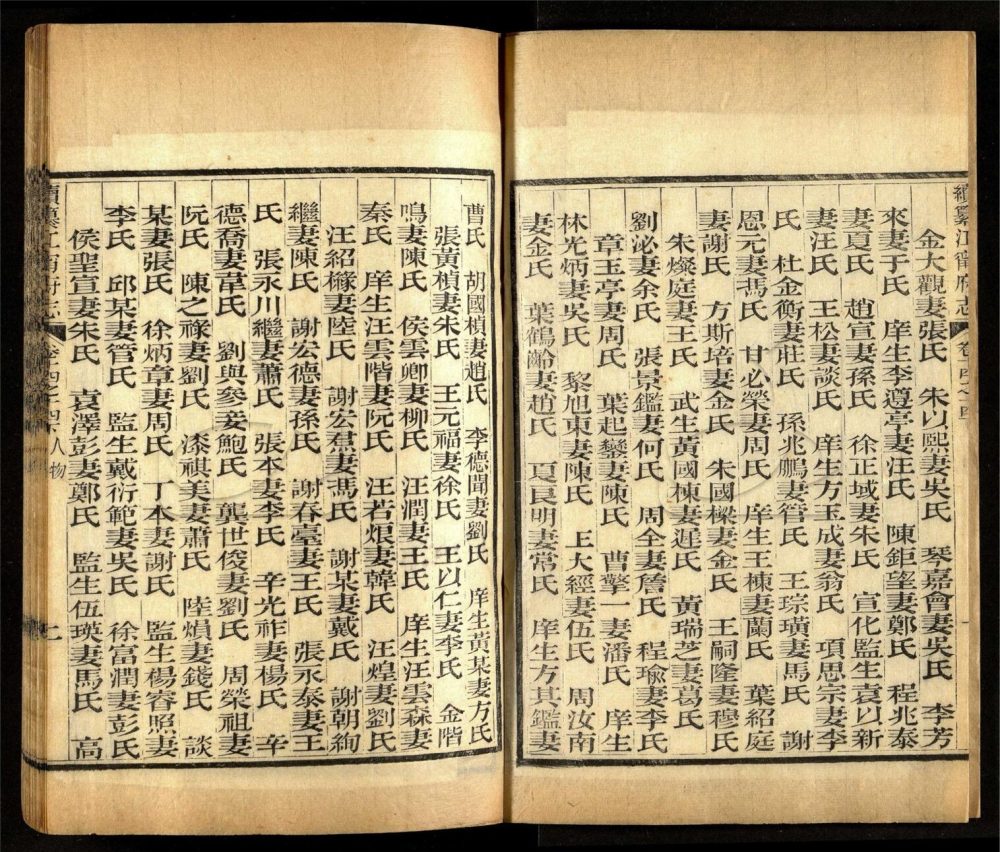 續纂江甯府志 卷十四之十四
金大觀妻張氏 朱以熙妻吳氏 琴嘉會妻吳氏 李芳
來妻于氏 庠生李遵亭妻汪氏 陳鉅望妻鄭氏 程兆泰
妻夏氏 趙宣妻孫氏 徐正域妻朱氏 宣化監生袁以新
妻汪氏 王松妻談氏 庠生方玉成妻翁氏 項思宗妻李
氏 杜金衡妻莊氏 孫兆鵬妻管氏 王琮璜妻馬氏 謝
恩元妻馮氏 甘必榮妻周氏 庠生王棟妻蘭氏 葉紹庭
妻謝氏 方斯培妻金氏 朱國樑妻金氏 王嗣隆妻穆氏
朱燦庭妻王氏 武生黃國棟妻遲氏 黃瑞芝妻葛氏
劉泌妻余氏 張景鑑妻何氏 周全妻詹氏 程瑜妻李氏
章玉亭妻周氏 葉起鑾妻陳氏 曹擎一妻潘氏 庠生
林光炳妻吳氏 黎旭東妻陳氏 上大經妻伍氏 周汝南
妻金氏 葉鶴齡妻趙氏 夏良明妻常氏 庠生方其鑑妻
曹氏 胡國楨妻趙氏 李德聞妻劉氏 庠生黃某妻方氏
張黃楨妻朱氏 王元福妻徐氏 王以仁妻李氏 金階
鳴妻陳氏 侯雲卿妻柳氏 汪潤妻王氏 庠生汪雲森妻
秦氏 庠生汪雲階妻阮氏 汪若烺妻韓氏 汪煌妻劉氏
汪紹椽妻陸氏 謝宏焄妻馮氏 謝某妻戴氏 謝朝絢
繼妻陳氏 謝宏德妻孫氏 謝春臺妻王氏 張永泰妻王
氏 張永川繼妻蕭氏 張本妻李氏 辛光祚妻楊氏 辛
德喬妻韋氏 劉與參妾鮑氏 龔世俊妻劉氏 周榮祖妻
阮氏 陳之祿妻劉氏 漆祺美妻蕭氏 陸熉妻錢氏 談
某妻張氏 徐炳章妻周氏 丁本妻謝氏 監生楊睿照妻
李氏 邱某妻管氏 監生戴衍範妻吳氏 徐富潤妻彭氏
侯聖宣妻朱氏 袁澤彭妻鄭氏 監生伍瑛妻馬氏 高
續纂江甯府志 卷十四之十四 人物 七